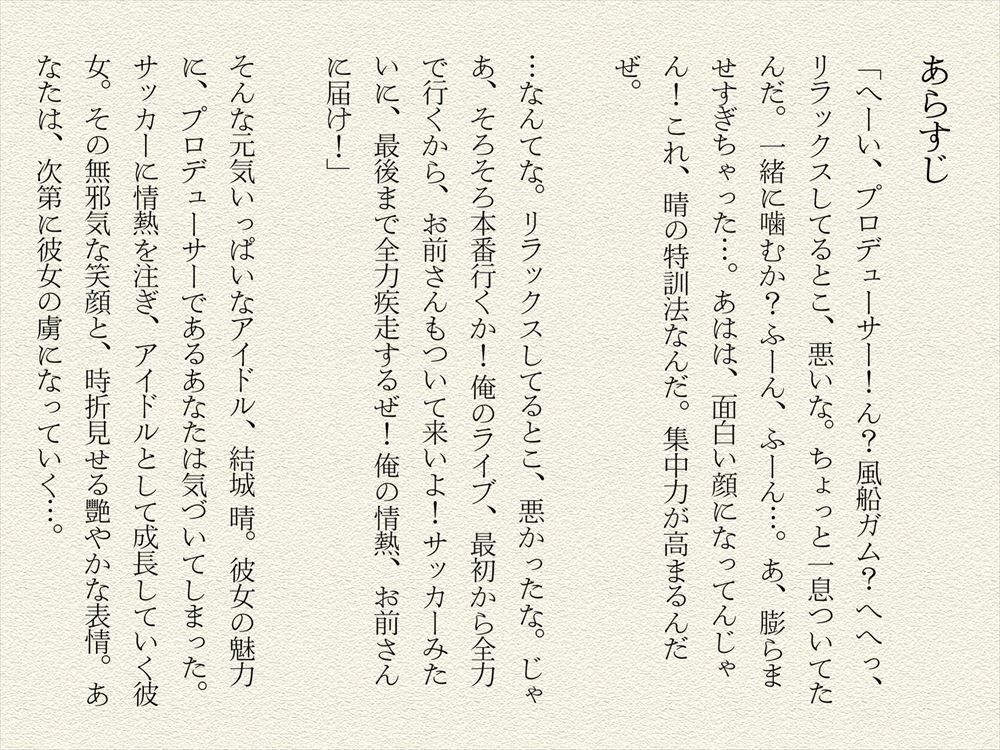 あらすじ
「へーい、プロデューサー！ん？風船ガム？へへっ、
リラックスしてるとこ、悪いな。ちょっと一息ついてた
んだ。一緒に噛むか？ふーん、ふーん…。あ、膨らま
せすぎちゃった…。あはは、面白い顔になってんじゃ
ん！これ、晴の特訓法なんだ。集中力が高まるんだ
ぜ。
…なんてな。リラックスしてるとこ、悪かったな。じゃ
あ、そろそろ本番行くか！俺のライブ、最初から全力
で行くから、お前さんもついて来いよ！サッカーみた
いに、最後まで全力疾走するぜ！俺の情熱、お前さん
に届け！」
そんな元気いっぱいなアイドル、結城 晴。彼女の魅力
に、プロデューサーであるあなたは気づいてしまった。
サッカーに情熱を注ぎ、アイドルとして成長していく彼
女。その無邪気な笑顔と、時折見せる艶やかな表情。あ
なたは、次第に彼女の虜になっていく…。